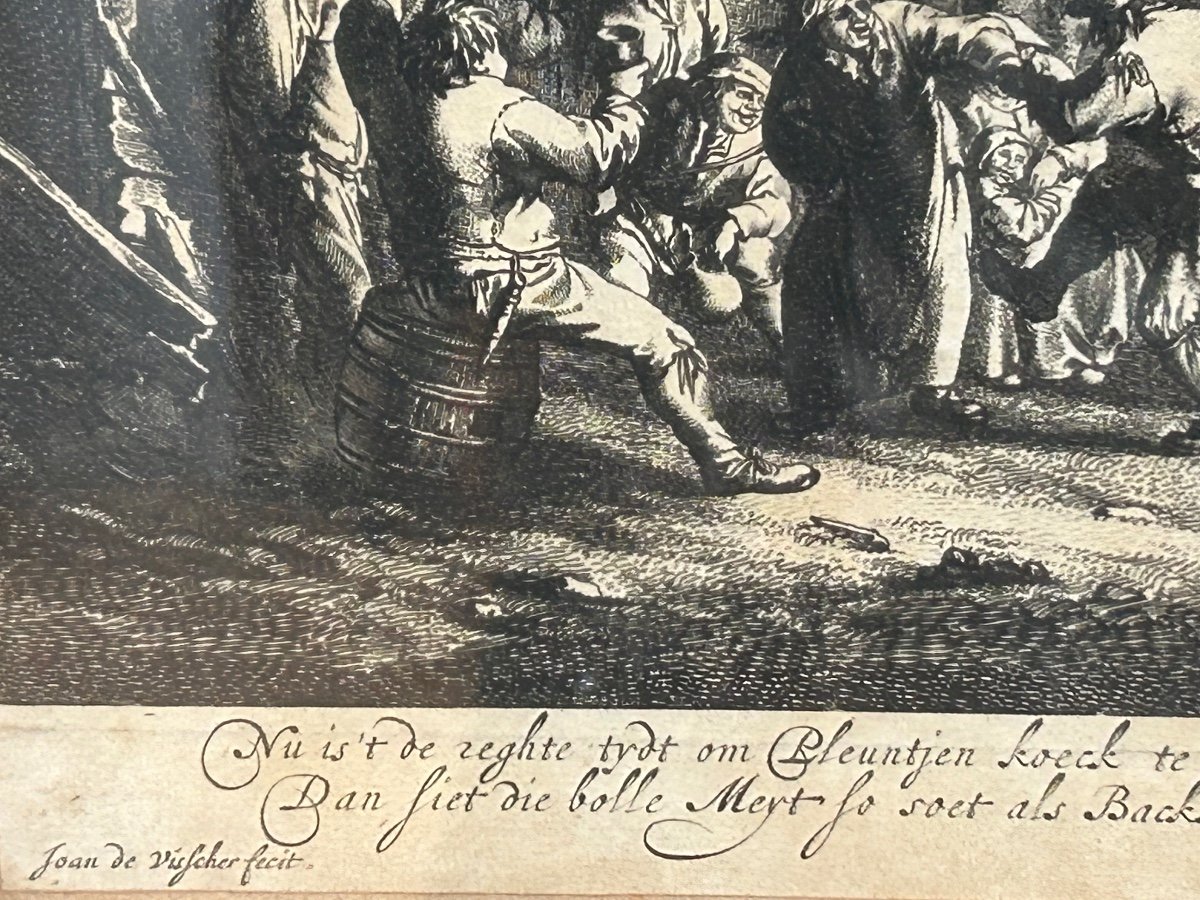 Nu is't de reghte tydt om Pleuntjen koeck te
Dan siet die bolle Meyt so soet als Back
Joan de Visscher fecit.